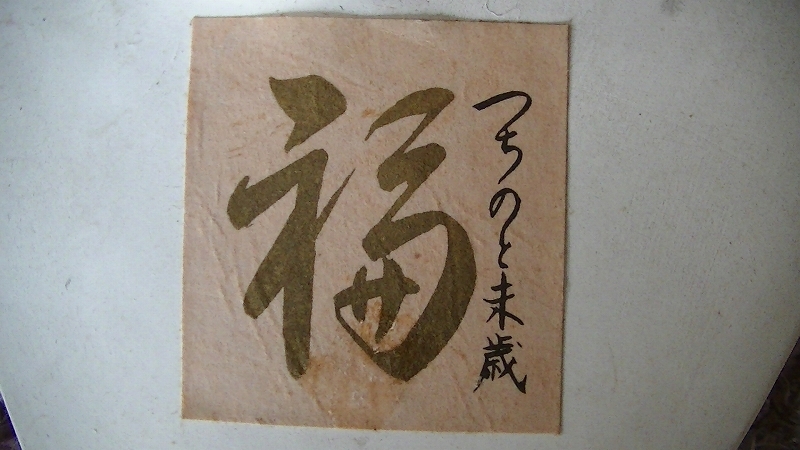 つちのと未歳
福